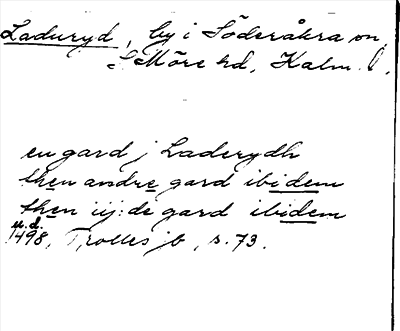 Laduryd, by i Söderåkra sn,
S Möre hd, Kalm. l.
en gard j Laderydh
then andre gard ibidem
then iij:de gard ibidem
u.d.
1498, Trolles jb, s. 73.